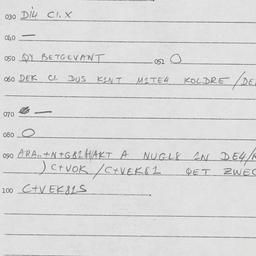 030 DI4 CI.X
040 —
050 QY BETGEVANT 051 O
060 DEK CL DUS KINT MITE4 KOLDRE /DE
070 —
080 O
090 ARA..+N+G81HAKT A NUGL8 IN DE4/
) C+VOK /C+VEK81 QET ZWEC
100 C+VEK81S